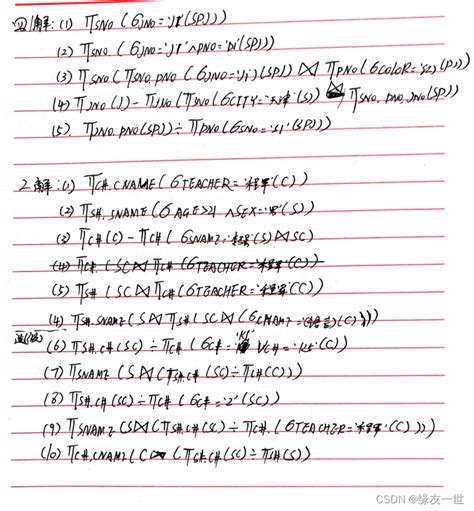 四解: (1) πSNO (σJNO='J1'(SPJ))
(2) πSNO (σJNO='J1'∧PNO='P1'(SPJ))
(3) πSNO (πSNO.PNO (σJNO='J1'(SPJ)) ⋈ πPNO (σCOLOR='红'(P)))
(4) πJNO (J) - πJNO (πSNO (σCITY='天津'(S)) ⋈ πSNO, PNO, JNO(SPJ))
(5). πJNO.PNO(SPJ) ÷ πPNO (σSNO='S1'(SPJ))
2.解: (1) πC#.CNAME (σTEACHER='程军'(C))
(2) πS#.SNAME (σAGE>21 ∧SEX='男'(S))
(3) πC#(C) - πC# (σSNAME='李强'(S) ⋈ SC)
(4) πC# (SC ⋈ πC# (σTEACHER='程军'(C))
(5) πS# (SC ⋈ πC# (σTEACHER='程军'(C))
(4) πS#.SNAME (S ⋈ πS# (SC ⋈ (σCNAME='C语言'(C))))
(6) πS#.C# (SC) ÷ πC# (σC#='K1' ∨C#='K5'(C))
(7) πSNAME (S ⋈ (πS#.C# (SC) ÷ πC#(C)))
(8) πS#.C# (SC) ÷ πC# (σC#='2'(SC))
(9) πSNAME (S ⋈ (πS#.C# (SC) ÷ πC#. (σTEACHER='程军'(C))))
(10) πC#.CNAME (C ⋈ (πS#.C# (SC) ÷ πS#(S))
CSDN @缘友一世